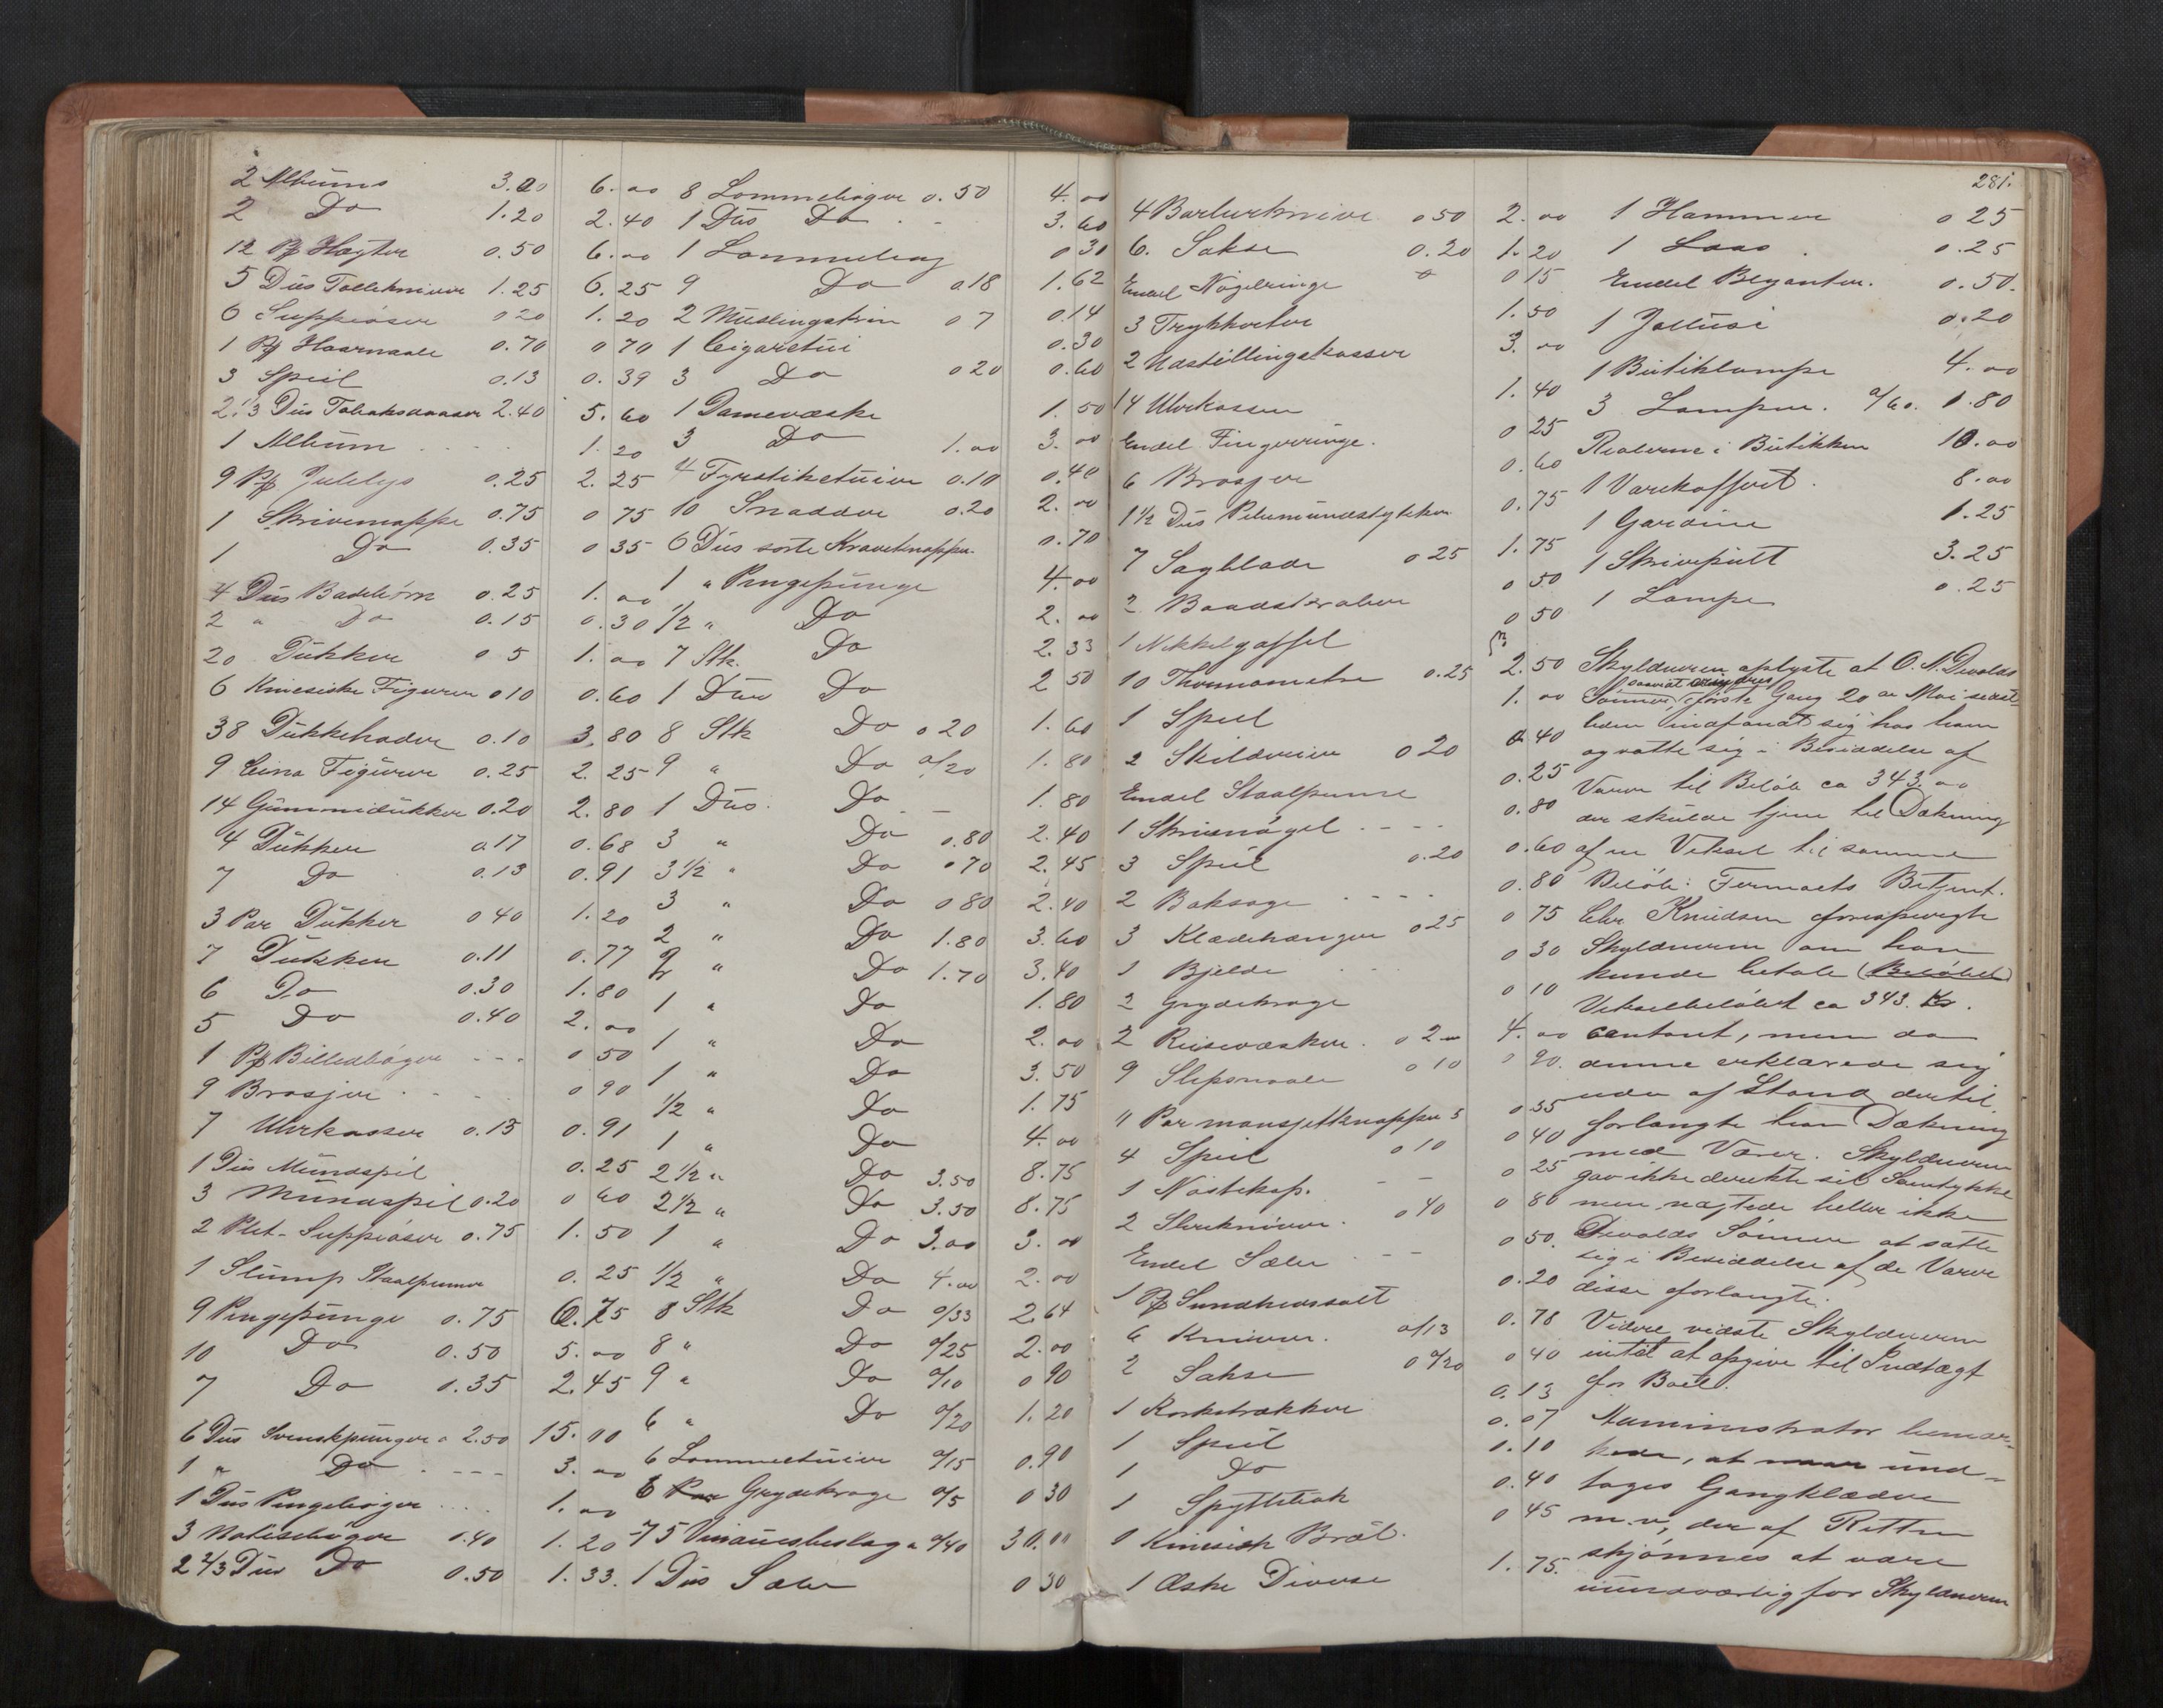 2 Albums 3.00 6.00
2 Do 1.20 2.40
12 Pf Hægter 0.50 6.00
5 Dus Tolleknive 1.25 6.25
6 Suppeøser 0 20 1.20
1 Pf Haarnaale 0.70 0 70
3 Speil 0.13 0.39
2 1/3 Dus Tobaksdaaser 2.40 5.60
1 Album 1.20
9 Pf Julelys 0.25 2.25
1 Skrivemappe 0.75 0 75
1 Do 0.35 0 35
4 Dus Badebørn 0.25 1.00
2 " Do 0.15 0.30
20 Dukker 0 5 1.00
6 Kinesiske Figurer 0 10 0.60
38 Dukkehoder 0.10 3.80
9 Cina Figurer 0.25 2.25
14 Gummidukker 0.20 2.80
4 Dukker 0.17 0.68
7 Do 0.13 0.91
3 Par Dukker 0 40 1.20
7 Dukker 0.11 0.77
6 Do 0.30 1.80
5 Do 0.40 2.00
1 Pf Billedbøger - - - 0 50
9 Brosjer 0 90
7 Uhrkasser 0.13 0.91
1 Dus Mundspil 0.25
3 Mundspil 0.20 0 60
2 Plet-Suppeøser 0.75 1.50
1 Slump Staalpenner 0.25
9 Pengepunge 0.75 6.75
10 Do 0.50 5.00
7 Do 0.35 2.45
6 Dus Svenskpunger a 2.50 15.00
1 " Do - - - 3.00
1 Dus Pengebøger 1.00
3 Notisebøger 0.40 1.20
2 2/3 Dus Do 0.50 1.33.
8 Lommebøger 0.50 4.00
1 Dus Do 3.60
1 Lommebog 0 30
9 Do 0.18 1.62
2 Muslingskrin 0 7 0.14
1 Cigaretui 0.30
3 Do 0 20 0.60
1 Damevæske 1.50
3 Do 1.00 3.00
4 Fyrstiketuier 0.10 0.40
10 Snadder 0.20 2.00
6 Dus sorte Kraveknapper 0.70
1 " Pengepunge 4.00
1/2 " Do 2.00
7 Stk. Do 2.33
1 Dus Do 2 50
8 Stk Do 0 20 1.60
9 " Do a/20 1.80
1 Dus. Do - 1.80
3 " Do 0.80 2.40
3 1/2 " Do 0 70 2.45
3 " Do 0 80 2.40
2 " Do 1.80 3.60
2 " Do 1.70 3.40
1 " Do 1.80
1 " Do 2.00
1 " Do 3.50
1/2 " Do 1.75
1 " Do 4.00
2 1/2 " Do 3.50 8.75
2 1/2 " Do 3.50 8.75
1 " Do 3.00 3.00
1/2 " Do 4.00 2.00
8 Stk Do a/33 2.64
8 " Do a/25 2.00
9 " Do a/10 0 90
6 " Do a/20 1.20
6 Lommeetuier a/15 0.90
6 Par Grydekroge a/5 0 30
75 Vinduesbeslag a a/40 30.00
1 Dus Sæler 0 30
281.
4 Barberknive 0 50 2.00
6. Sakse 0.20 1.20
Endel Nøgelringe 0 15
3 Trykkerter 1.50
2 Udstillingskasser 3.00
14 Uhrkasser 1.40
Endel Fingerringe. 0 25
6 Brosjer 0.60
1 1/2 Dus Pibemundstykker 0.75
7 Sagblade 0 25 1.75
2 Baadskraber 0 50
1 Nikkelgaffel 0 50
10 Thermometre 0.25 2.50
1 Speil 1.00
2 Skilderier 0 20 0 40
Endel Staalpenne 0.25
1 Skruenøgel - - - - 0.80
3 Speil 0.20 0.60
2 Baksage - - - - 0.80
3 Klædehenger 0 25 0 75
1 Bjelde 0 30
2 Grydekroge 0 10
2 Reisevæsker. 0 2 00 4.00
9 Slipsnaale 0 10 0 90.
11 Par mansjetknapper 5 0.35
4 Speil 0 10 0 40
1 Nøstekop. - - 0 25
2 Sløikniver. 0 40 0 80
Endel Sæler - - 0 50.
1 Pf Sundhedssalt 0.20
6 Kniver. a/13 0.78
2 Sakse 0 a/20 0 40
1 Korketrækker 0.13
1 Speil 0.07
1 Do 0.10
1 Spyttebak 0.40
0 Kinesisk Bræt. 0 45
1 Æske Diverse 1.75.
1 Hammer 0 25
1 Laas. 0.25
Endel Blyanter. 0.50.
1 Jallusi 0.20
1 Butiklampe 4.00
3 Lamper. a/60. 1.80
Reolerne i Butikken 10.00
1 Varekoffert. 8.00
1 Gardine 1.25
1 Skrivepult 3.25
1 Lampe 0.25
Skyldneren oplyste at O. A. Devolds
Sønner, saavidt erindres, første Gang 20de Mai sidst-
leden indfandt sig hos ham
og satte sig i Besiddelse af
Varer til Beløb ca 343.00
der skulde tjene til Dækning
af en Veksel til samme
Beløb: Firmaets Betjent.
Chr Knudsen forespurgte
Skyldneren om han
kunde betale (Beløbet)
Vekselbeløbet ca 343. Kr.
contant, men da
denne erklærede sig
ude af Stand dertil,
forlangte han Dækning
med Varer. Skyldneren
gav ikke direkte sit Samtykke
men nægtede heller ikke
Devolds Sønner at sætte
sig i Besiddelse af de Varer
disse forlangte.
Videre vidste Skyldneren
intet at opgive til Indtægt
for Boet.
Administrator bemær-
kede, at naar und-
tages Gangklæder
m.v, der af Retten
skjønnes at være
uundværlig for Skyldneren